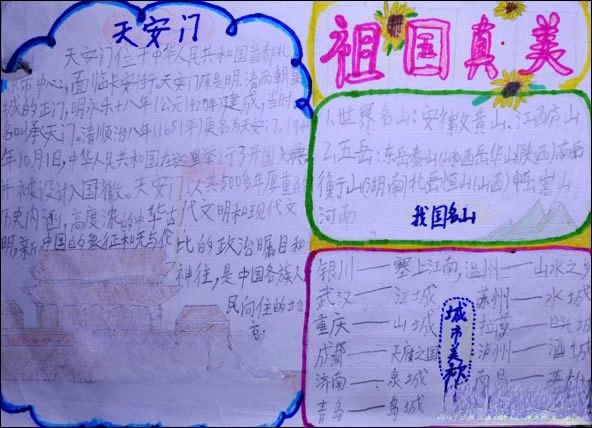 天安门
天安门位于中华人民共和国首都北
京市中心,面临长安街。天安门原是明、清两朝皇
城的正门,明永乐十八年(公元1420年)建成,当时
名叫承天门。清顺治八年(1651年)更名为天安门。194
年10月1日,中华人民共和国在这里举行了开国大典
并被设计入国徽。天安门以共500多年厚重的
历史内涵,高度浓的中华古代文明和现代文
明,新中国的象征和无与伦比的政治瞩目和
神往,是中国各族人
民向住的土也
祖国真美
1、世界名山:安徽黄山。江西庐山
2、五岳:东岳泰山 西岳华山(陕西)南岳
衡山(湖南)北岳恒山(山西)中岳嵩山
河南
我国名山
银川——塞上江南,温州——山水之乡
武汉——江城 苏州——水城
重庆——山城 拉萨——城
成都——天府之国 泸州——酒城
济南——泉城 南昌——英雄
青岛——岛城
城市美称